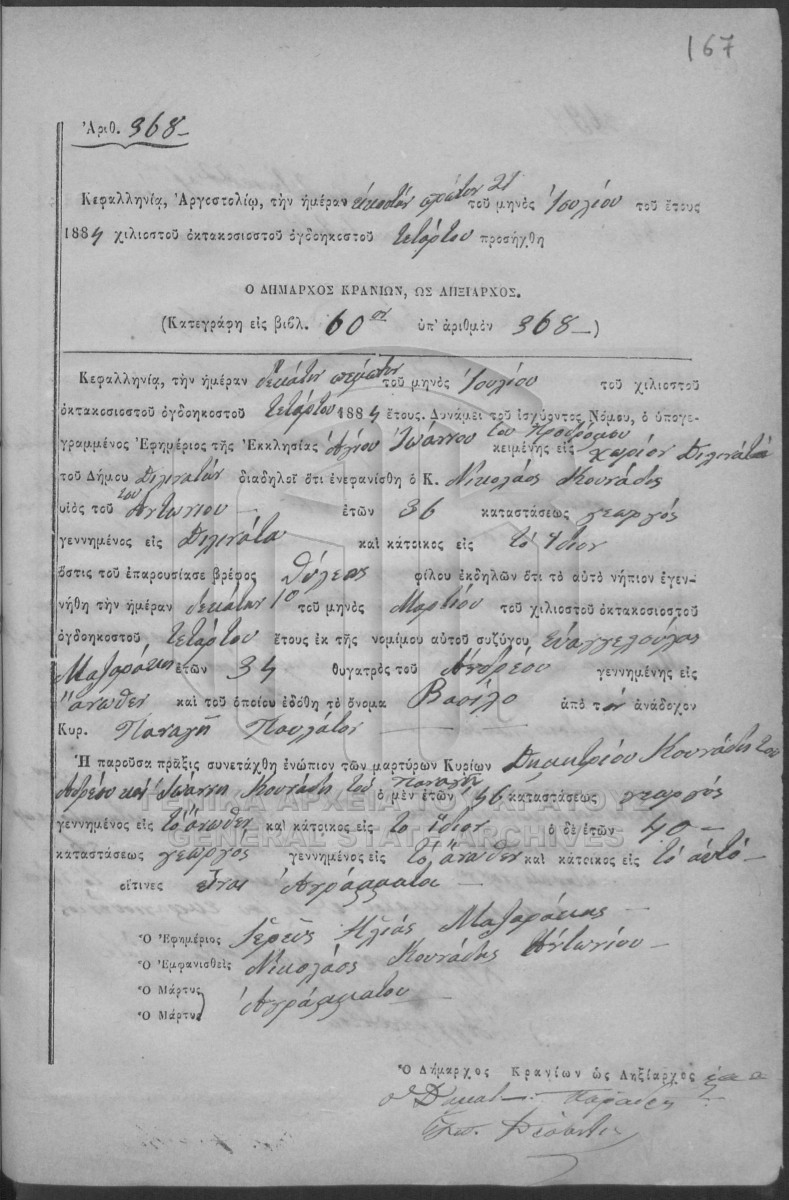 167
Ἀριθ. 368
Κεφαλληνίᾳ, Ἀργοστολίῳ, τὴν ἡμέραν εἰκοστὴν πρώτην 21 τοῦ μηνὸς Ἰουλίου τοῦ ἔτους
1884 χιλιοστοῦ ὀκτακοσιοστοῦ ὀγδοηκοστοῦ τετάρτου προσήχθη
Ο ΔΗΜΑΡΧΟΣ ΚΡΑΝΙΩΝ, ΩΣ ΛΗΞΙΑΡΧΟΣ.
(Κατεγράφη εἰς βιβλ. 60 ὑπ' ἀριθμὸν 368 )
Κεφαλληνίᾳ, τὴν ἡμέραν δεκάτην πέμπτην τοῦ μηνὸς Ἰουλίου τοῦ χιλιοστοῦ
ὀκτακοσιοστοῦ ὀγδοηκοστοῦ τετάρτου 1884 ἔτους. Δυνάμει τοῦ ἰσχύοντος Νόμου, ὁ ὑπογε-
γραμμένος Ἐφημέριος τῆς Ἐκκλησίας Ἁγίου Ἰωάννου του Προδρόμου κειμένης εἰς χωρίον Διλινάτα
τοῦ Δήμου Διλινατῶν διαδηλοῖ ὅτι ἐνεφανίσθη ὁ Κ. Νικολάος Κουνάδης
υἱὸς τοῦ του Ἀντωνίου ἐτῶν 36 καταστάσεως γεωργός
γεννημένος εἰς Διλινάτα καὶ κάτοικος εἰς τὸ ἴδιον
ὅστις τοῦ ἐπαρουσίασε βρέφος θύλεος φίλου ἐκδηλῶν ὅτι τὸ αὐτὸ νήπιον ἐγεν-
νήθη τὴν ἡμέραν δεκάτην 10 τοῦ μηνὸς Μαρτίου τοῦ χιλιοστοῦ ὀκτακοσιοστοῦ
ὀγδοηκοστοῦ τετάρτου ἔτους ἐκ τῆς νομίμου αὐτοῦ συζύγου Εὐαγγελούλας
Μαζαράκη ἐτῶν 34 θυγατρὸς τοῦ Ἀνδρέου γεννημένης εἰς
ἄνωθεν καὶ τοῦ ὁποίου ἐδόθη τὸ ὄνομα Βασίλο ἀπὸ τὸν ἀνάδοχον
Κυρ. Παναγῆ Παυλάτον
Ἡ παροῦσα πρᾶξις συνετάχθη ἐνώπιον τῶν μαρτύρων Κυρίων Δημητρίου Κουνάδη του
Ἀνδρέου καὶ Ἰωάννη Κουνάδη του Παναγῆ ὁ μὲν ἐτῶν 46 καταστάσεως γεωργός
γεννημένος εἰς τὸ ἄνωθεν καὶ κάτοικος εἰς το ἴδιον ὁ δὲ ἐτῶν 40
καταστάσεως γεωργος γεννημένος εἰς τὸ ἄνωθεν καὶ κάτοικος εἰς τὸ αὐτό
οἵτινες εἶναι ἀγράμματοι
Ὁ Ἐφημέριος Ἱερεὺς Ηλιάς Μαζαράκης
Ὁ Ἐμφανισθεὶς Νικολάος Κουνάδης Ἀντωνίου
Ὁ Μάρτυς Ἀγράμματοι
Ὁ Μάρτυς
Ὁ Δήμαρχος Κρανίων ὡς Ληξίαρχος
ΓΕΝΙΚΑ ΑΡΧΕΙΑ ΤΟΥ ΚΡΑΤΟΥΣ
GENERAL STATE ARCHIVES